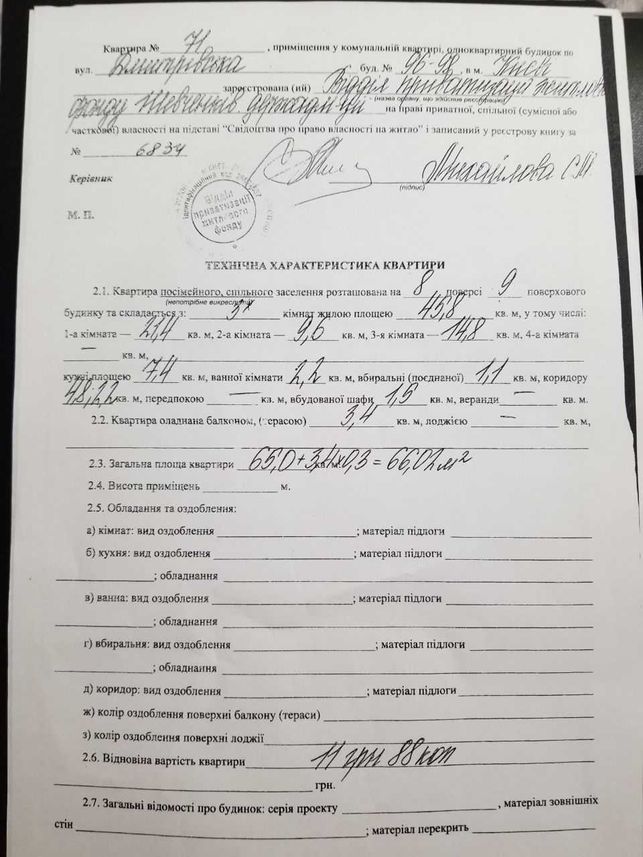 Квартира № 71, приміщення у комунальній квартирі, одноквартирний будинок по
вул. Дмитрівська буд. № 96-98, в м. Києві
зареєстрована (ий) Відділ приватизації
(назва органу, що здійснює реєстрацію)
фонду на праві приватної, спільної (сумісної або
часткової) власності на підставі "Свідоцтва про право власності на житло" і записаний у реєстрову книгу за
№ 6834
Керівник Михайлова С.
(підпис)
М. П.
Відділ
приватизації
житлового
фонду
ТЕХНІЧНА ХАРАКТЕРИСТИКА КВАРТИРИ
2.1. Квартира посімейного, спільного заселення розташована на 8 поверсі 9 поверхового
(непотрібне викреслити)
будинку та складається з: 3х кімнат жилою площею 45,8 кв. м, у тому числі:
1-а кімната — 21,4 кв. м, 2-а кімната — 9,6 кв. м, 3-я кімната — 14,8 кв. м, 4-а кімната
— кв. м,
кухні площею 7,4 кв. м, ванної кімнати 2,2 кв. м, вбиральні (поєднаної) 1,1 кв. м, коридору
кв. м, передпокою — кв. м, вбудованої шафи 1,5 кв. м, веранди — кв. м.
2.2. Квартира оладнана балконом, (терасою) 3,4 кв. м, лоджією — кв. м,
2.3. Загальна площа квартири 65,0+3,4х0,3 = 66,02 м² кв. м.
2.4. Висота приміщень м.
2.5. Обладання та оздоблення:
а) кімнат: вид оздоблення ; матеріал підлоги
б) кухня: вид оздоблення ; матеріал підлоги
; обладнання
в) ванна: вид оздоблення ; матеріал підлоги
; обладнання
г) вбиральня: вид оздоблення ; матеріал підлоги
; обладнання
д) коридор: вид оздоблення ; матеріал підлоги
ж) колір оздоблення поверхні балкону (тераси)
з) колір оздоблення поверхні лоджії
2.6. Відновіна вартість квартири 11 грн 88 коп
грн.
2.7. Загальні відомості про будинок: серія проекту , матеріал зовнішніх
стін ; матеріал перекрить